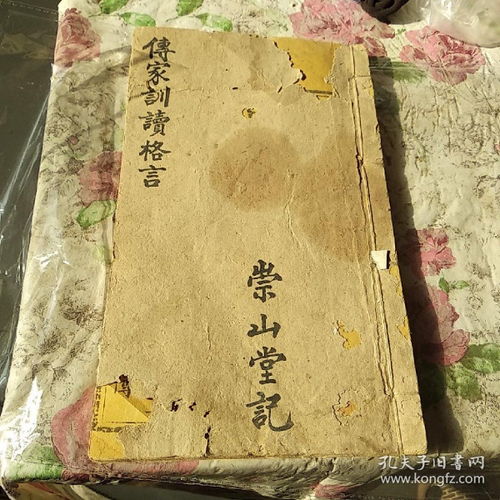 傳家訓讀格言
崇山堂記
孔夫子旧书网
www.kongfz.com